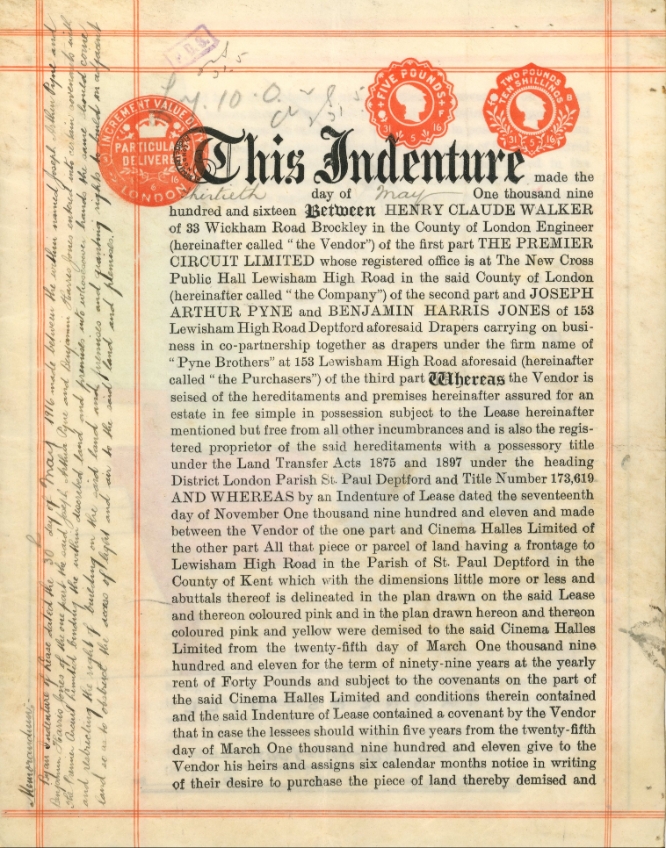 Memorandum:-
By an Indenture of Lease dated the 30 day of May 1916 made between the within named Joseph Arthur Pyne and
Benjamin Harris Jones of the one part the said Joseph Arthur Pyne and Benjamin Harris Jones entered into certain covenants with
the Premier Circuit Limited binding the within described land and premises into whosesoever hands the same should come
and restricting the right of building on the said land and premises and granting rights to build on a part
land so as to obstruct the access of light and air to the said land and premises.
INCREMENT VALUE DUTY
PARTICULARS
DELIVERED
LONDON
FIVE POUNDS
31 5 16
TWO POUNDS
TEN SHILLINGS
31 5 16
This Indenture made the
thirtieth day of May One thousand nine
hundred and sixteen Between HENRY CLAUDE WALKER
of 33 Wickham Road Brockley in the County of London Engineer
(hereinafter called "the Vendor") of the first part THE PREMIER
CIRCUIT LIMITED whose registered office is at The New Cross
Public Hall Lewisham High Road in the said County of London
(hereinafter called "the Company") of the second part and JOSEPH
ARTHUR PYNE and BENJAMIN HARRIS JONES of 153
Lewisham High Road Deptford aforesaid Drapers carrying on busi-
ness in co-partnership together as drapers under the firm name of
"Pyne Brothers" at 153 Lewisham High Road aforesaid (hereinafter
called "the Purchasers") of the third part Whereas the Vendor is
seised of the hereditaments and premises hereinafter assured for an
estate in fee simple in possession subject to the Lease hereinafter
mentioned but free from all other incumbrances and is also the regis-
tered proprietor of the said hereditaments with a possessory title
under the Land Transfer Acts 1875 and 1897 under the heading
District London Parish St. Paul Deptford and Title Number 173,619
AND WHEREAS by an Indenture of Lease dated the seventeenth
day of November One thousand nine hundred and eleven and made
between the Vendor of the one part and Cinema Halles Limited of
the other part All that piece or parcel of land having a frontage to
Lewisham High Road in the Parish of St. Paul Deptford in the
County of Kent which with the dimensions little more or less and
abuttals thereof is delineated in the plan drawn on the said Lease
and thereon coloured pink and in the plan drawn hereon and thereon
coloured pink and yellow were demised to the said Cinema Halles
Limited from the twenty-fifth day of March One thousand nine
hundred and eleven for the term of ninety-nine years at the yearly
rent of Forty Pounds and subject to the covenants on the part of
the said Cinema Halles Limited and conditions therein contained
and the said Indenture of Lease contained a covenant by the Vendor
that in case the lessees should within five years from the twenty-fifth
day of March One thousand nine hundred and eleven give to the
Vendor his heirs and assigns six calendar months notice in writing
of their desire to purchase the piece of land thereby demised and